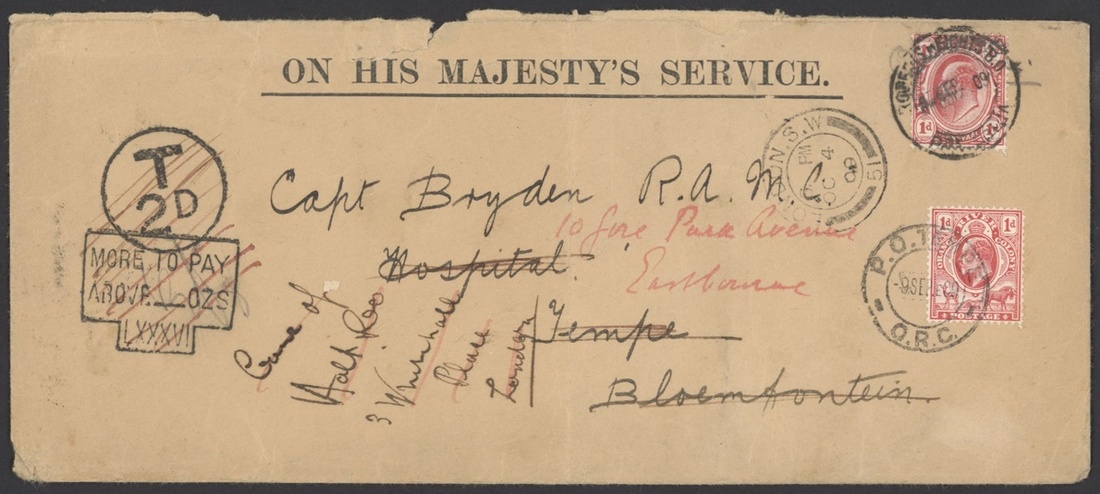 ON HIS MAJESTY'S SERVICE.
1d
T
2D
MORE TO PAY
ABOVE OZS
LXXXVI
LONDON. S.W
PM
OC 4
09
51
Capt Bryden R.A.M.C
10 Gore Park Avenue
Eastbourne
Hospital.
Tempe
Bloemfontein
Care of
Holt &Co
3 Whitehall
Place
London
1d 1d
ORANGE RIVER COLONY
POSTAGE
P.O. TEMPE
9 SEP 09
O.R.C.